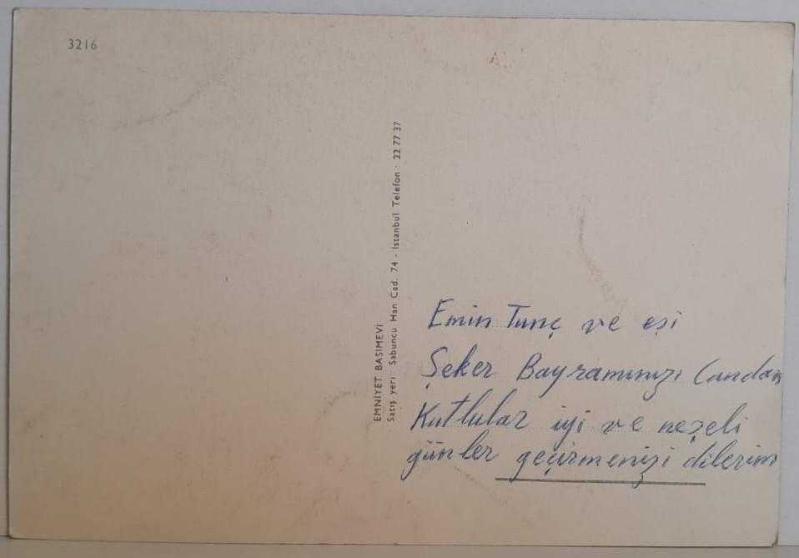 3216
EMNİYET BASIMEVİ
Satış yeri: Sabuncu Han Cad. 74 - İstanbul Telefon: 22 77 37
Emin Tunç ve eşi
Şeker Bayramınızı Candan
Kutlular iyi ve neşeli
günler geçirmenizi dilerim